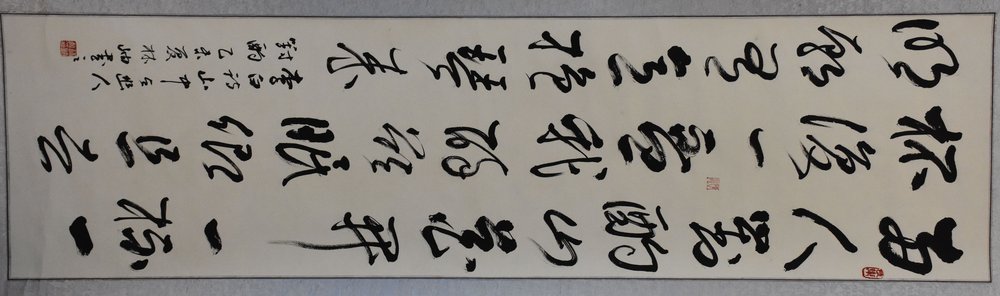 两人對酌山花開一杯一
杯復一盃我醉欲眠卿且去
明朝有意抱琴来
李白詩山中与幽人
對酌 乙未夏